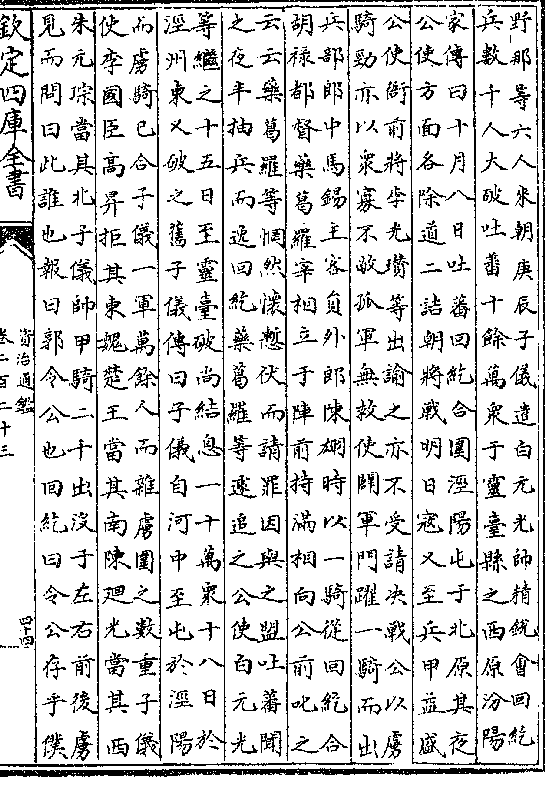 野那等六人來朝庚辰子儀遣白元光師精銳會回紇
兵數千人大破吐蕃十餘萬衆于靈臺縣之西原汾陽
家傳曰十月八日吐蕃回紇合圍涇陽屯于北原其夜
公使方面各除道二詰朝將戰明日寇又至兵甲益盛
公使衙前將李光瓚等出諭之亦不受請決戰公以虜
騎勁亦以衆寡不敵孤軍無救使闢軍門躍一騎而出
兵部郎中馬錫主客員外郎陳翃時以一騎從回紇合
胡祿都督藥葛羅宰相立于陣前持滿相向公前叱之
云云藥葛羅等惘然懷慙伏而請罪因與之盟吐蕃聞
之夜半抽兵而逸回紇藥葛羅等遽追之公使白元光
等繼之十五日至靈臺破尚結息一十萬衆十八日於
涇州東又破之舊子儀傳曰子儀自河中至屯於涇陽
而虜騎已合子儀一軍萬餘人而雜虜圍之數重子儀
使李國臣高昇拒其東魏楚王當其南陳廻光當其西
朱元琮當其北子儀帥甲騎二千出沒于左右前後虜
見而問曰此誰也報曰郭令公也回紇曰令公存乎僕
欽定四庫全書
資治通鑑
卷二百二十三
四十四